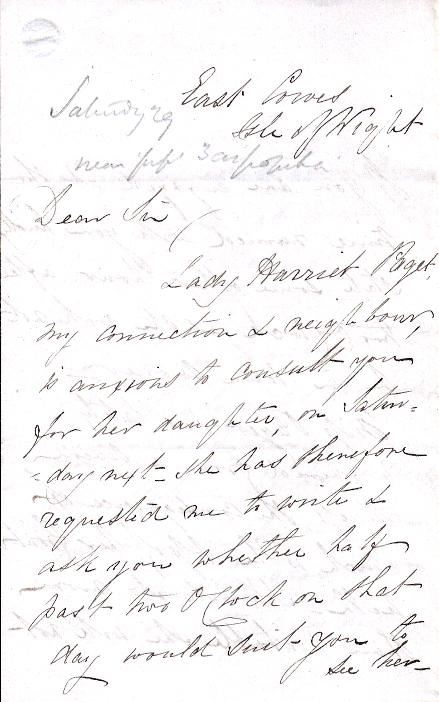 East Cowes
Isle of Wight
Saturdy 29
near 3
Dear Sir
Lady Harriet Paget,
my connection & neighbour,
is anxious to consult you
for her daughter, on Satur=
=day next - She has therefore
requested me to write &
ask you whether half
past two O'Clock on that
day would suit you to
see her -